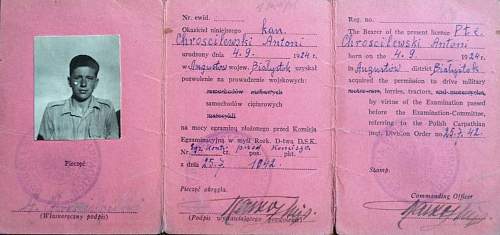 Pieczęć
(Własnoręczny podpis)
Nr. ewid.
Okaziciel niniejszego kan.
Chrościlewski Antoni
urodzony dnia 4.9. 1924 r.
w Augustów wojew. Białystok uzyskał
pozwolenie na prowadzenie wojskowych:
samochodów ciężarowych
na mocy egzaminu złożonego przed Komisją
Egzaminacyjną w myśl Rozk. D-twa D.S.K.
Nr. cz. pos. pkt.
z dnia 25.7. 1942.
Pieczęć okrągła.
(Podpis wystawiającego
Reg. no.
The Bearer of the present licence Pte.
Chrościlewski Antoni
born on the 4.9. 1924 r.
in Augustów district Białystok
acquired the permission to drive military
motor-cars, lorries, tractors, and motorcycles,
by virtue of the Examination passed
before the Examination-Committee,
referring to the Polish Carpathian
Division Order no 25.7.42.
Stamp:
Commanding Officer